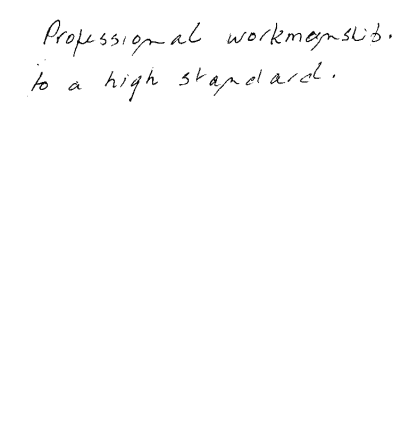 Professional workmanship.
to a high standard.